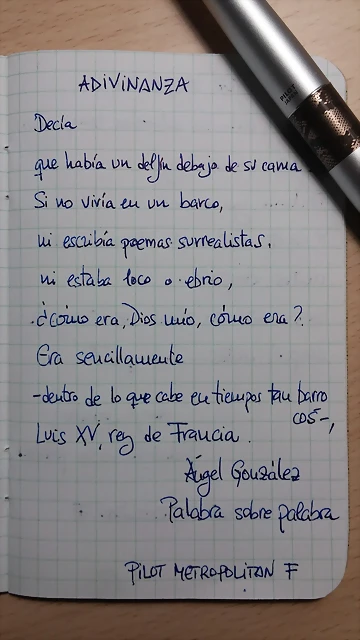 ADIVINANZA
Decía
que había un delfín debajo de su cama.
Si no vivía en un barco,
ni escribía poemas surrealistas,
ni estaba loco o ebrio,
¿cómo era, Dios mío, cómo era?
Era sencillamente
-dentro de lo que cabe en tiempos tan barro
cos-,
Luis XV, rey de Francia.
Ángel González
Palabra sobre palabra
PILOT METROPOLITAN F
PILOT
JAPAN